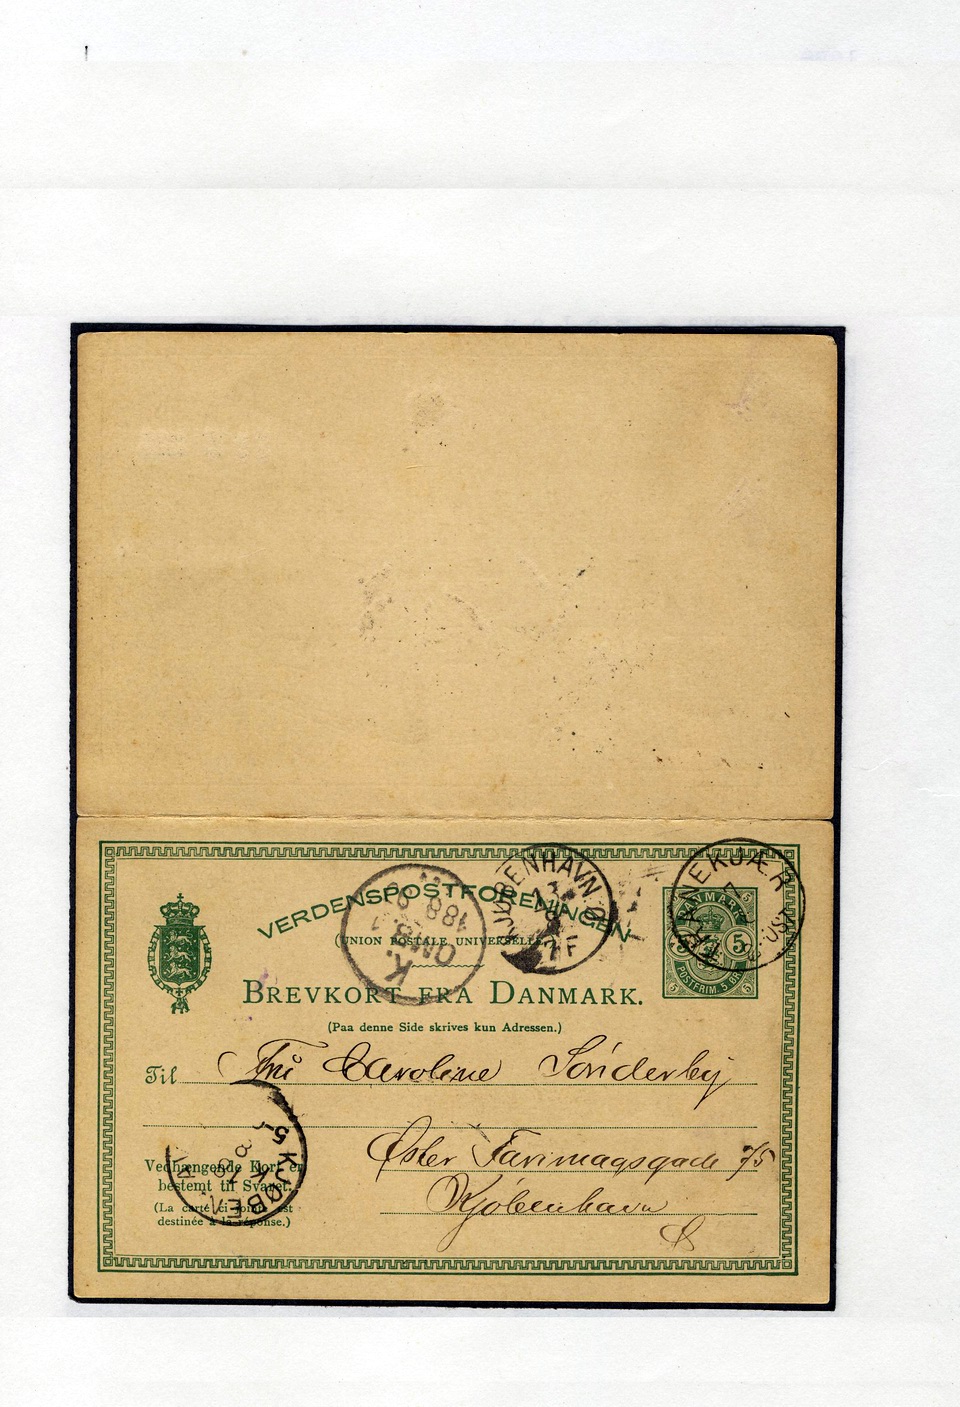 VERDENSPOSTFORENINGEN
(UNION POSTALE UNIVERSELLE.)
BREVKORT FRA DANMARK.
(Paa denne Side skrives kun Adressen.)
DANMARK
5 5
POSTFRIM. 5 ØRE
TRANEKJÆR
KJØBENHAVN Ø.
2 F
K.
OMB. 1
18 8
Til Fru Caroline Sønderby
Øster Farimagsgade 75
Kjøbenhavn
Ø
Vedhængende Kort er
bestemt til Svaret.
(La carte ci-jointe est
destinée à la réponse.)
5 KJØBENH